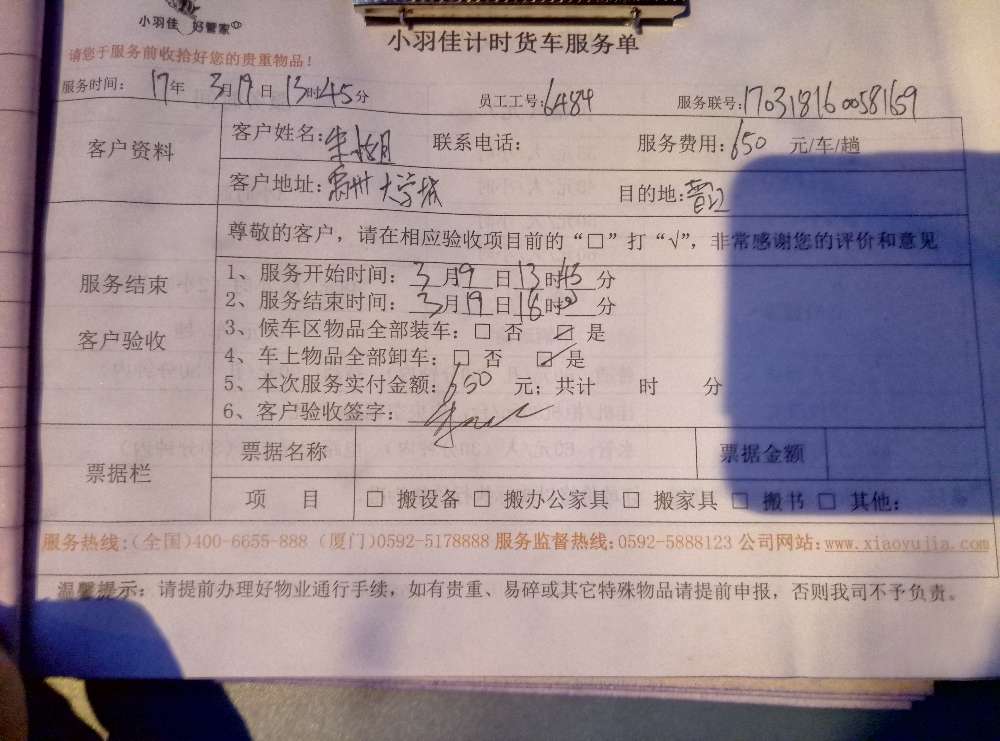 小羽佳 好管家
小羽佳计时货车服务单
请您于服务前收拾好您的贵重物品！
服务时间： 17年 3月19日 13时45分 员工工号：6484 服务联号：1703181600058169
客户资料
客户姓名：朱 联系电话： 服务费用：650 元/车/趟
客户地址：禹州大学城 目的地：晋江
尊敬的客户，请在相应验收项目前的“□”打“√”，非常感谢您的评价和意见
服务结束
客户验收
1、服务开始时间：3月9日13时45分
2、服务结束时间：3月19日18时 分
3、候车区物品全部装车：□ 否 ☑ 是
4、车上物品全部卸车：□ 否 ☑ 是
5、本次服务实付金额：650 元；共计 时 分
6、客户验收签字：
票据栏
票据名称 票据金额
项 目 □ 搬设备 □ 搬办公家具 □ 搬家具 □ 搬书 □ 其他：
服务热线：(全国)400-6655-888 (厦门)0592-5178888 服务监督热线：0592-5888123 公司网站：www.xiaoyujia.com
温馨提示：请提前办理好物业通行手续，如有贵重、易碎或其它特殊物品请提前申报，否则我司不予负责。